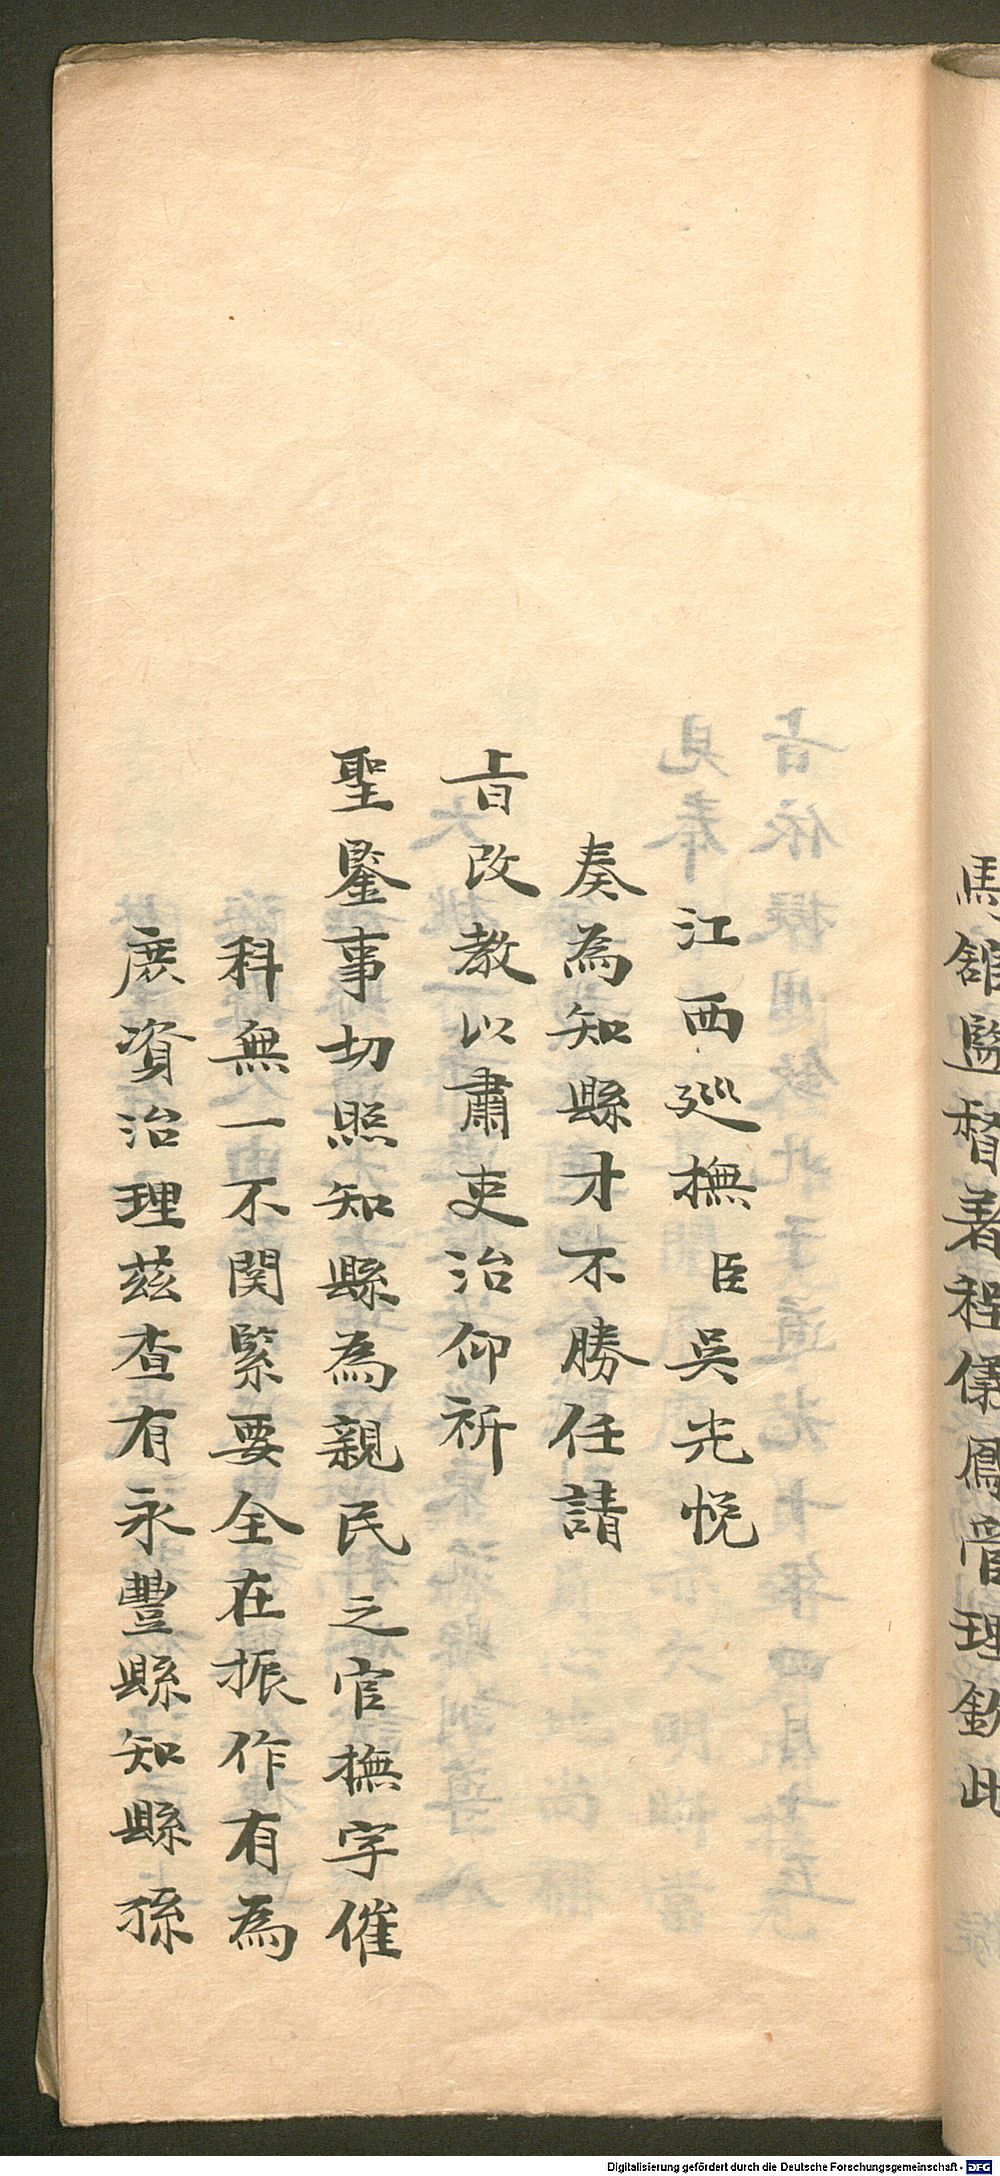 馬舘監督著程儀鳳管理欽此
江西廵撫臣吳光悅
奏為知縣才不勝任請
旨改教以肅吏治仰祈
聖鑒事切照知縣為親民之官撫字催
科無一不関緊要全在振作有為
庶資治理茲查有永豐縣知縣孫
Digitalisierung gefördert durch die Deutsche Forschungsgemeinschaft - DFG